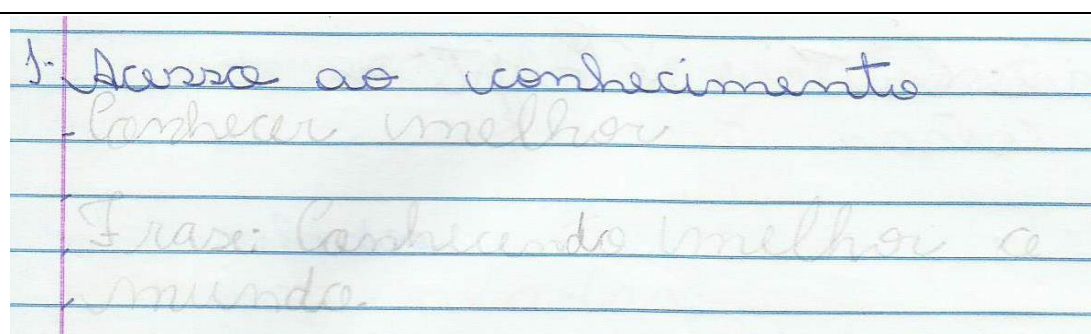 1- Acesso ao conhecimento
- Conhecer melhor
Frase: Conhecendo melhor o
mundo.